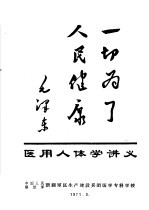 一切为了
人民健康
毛泽东
医用人体学讲义
中国人民解放军新疆军区生产建设兵团医学专科学校